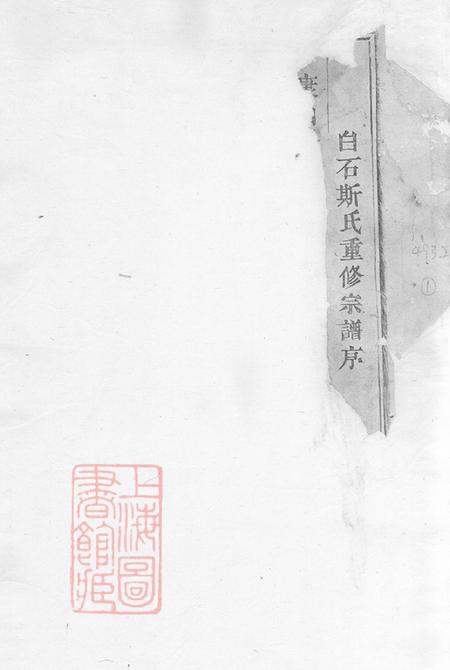 ①
白石斯氏重修宗譜序
上海圖
書館藏